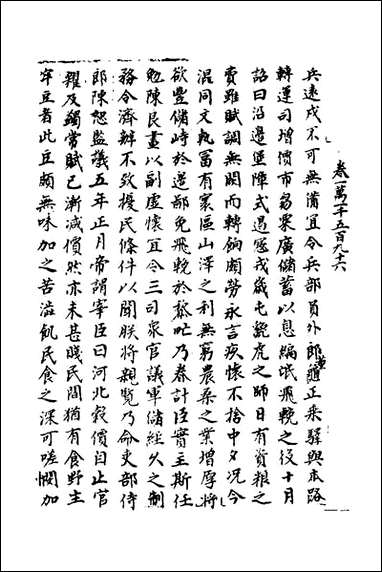 卷一萬二千五百九十六
兵遠戍不可無備宜令兵部員外郎董龜正乘驛與本路
轉運司增價市芻粟廣儲蓄以息編氓飛輓之役十月
詔曰沿邊堡障式遏寇戎歲屯貔虎之師日有資粮之
費雖賦調無闕而轉餉頗勞永言疚懷不捨中夕况今
混同文軌富有寰區山澤之利無窮農桑之業增厚將
欲豐儲峙於邊鄙免飛輓於黎甿乃眷計臣實主斯任
勉陳良畫以副虛懷宜令三司衆官議軍儲經久之制
務令濟辦不致擾民條件以聞朕將親覽乃命吏部侍
郎陳恕監議五年正月帝謂宰臣曰河北穀價自止官
糴及蠲常賦已漸減價然亦未甚賤民間猶有食野生
牢豆者此豆頗無味加之苦澁飢民食之深可嗟憫加